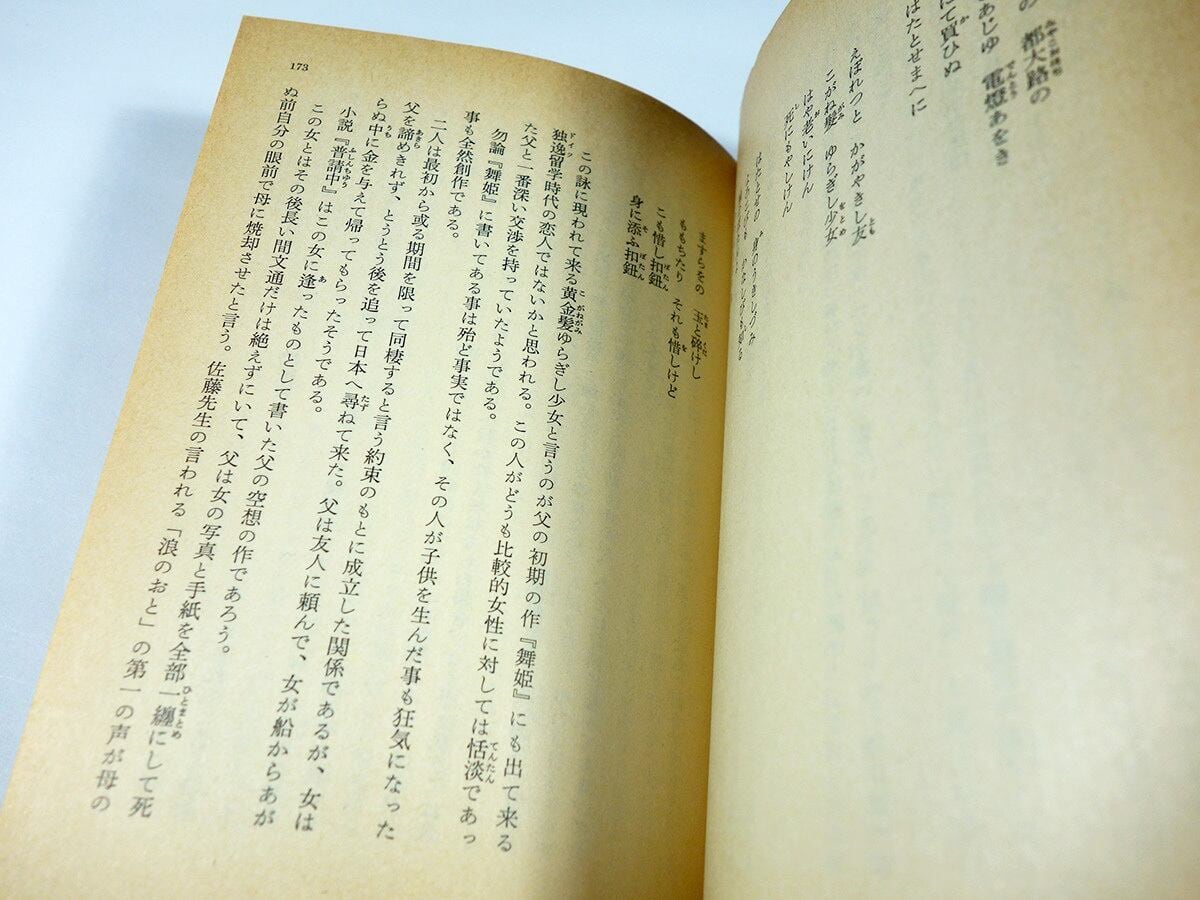 の　都大路の
あじゆ　電燈あをき
にて買ひぬ
はたとせまへに
えぽれつと　かがやきし友
こがね髪　ゆらぎし少女
はや老いにけん
死にもやしけん
はたとせの　身のうきしづみ
ますらをの　玉と碎けし
ももちたり　それも惜しけど
こも惜し扣鈕
身に添ふ扣鈕
この詠に現われて来る黄金髪ゆらぎし少女と言うのが父の初期の作『舞姫』にも出て来る
独逸留学時代の恋人ではないかと思われる。この人がどうも比較的女性に対しては恬淡であっ
た父と一番深い交渉を持っていたようである。
勿論『舞姫』に書いてある事は殆ど事実ではなく、その人が子供を生んだ事も狂気になった
事も全然創作である。
二人は最初から或る期間を限って同棲すると言う約束のもとに成立した関係であるが、女は
父を諦めきれず、とうとう後を追って日本へ尋ねて来た。父は友人に頼んで、女が船からあが
らぬ中に金を与えて帰ってもらったそうである。
小説『普請中』はこの女に逢ったものとして書いた父の空想の作であろう。
この女とはその後長い間文通だけは絶えずにいて、父は女の写真と手紙を全部一纏にして死
ぬ前自分の眼前で母に焼却させたと言う。佐藤先生の言われる「浪のおと」の第一の声が母の
173